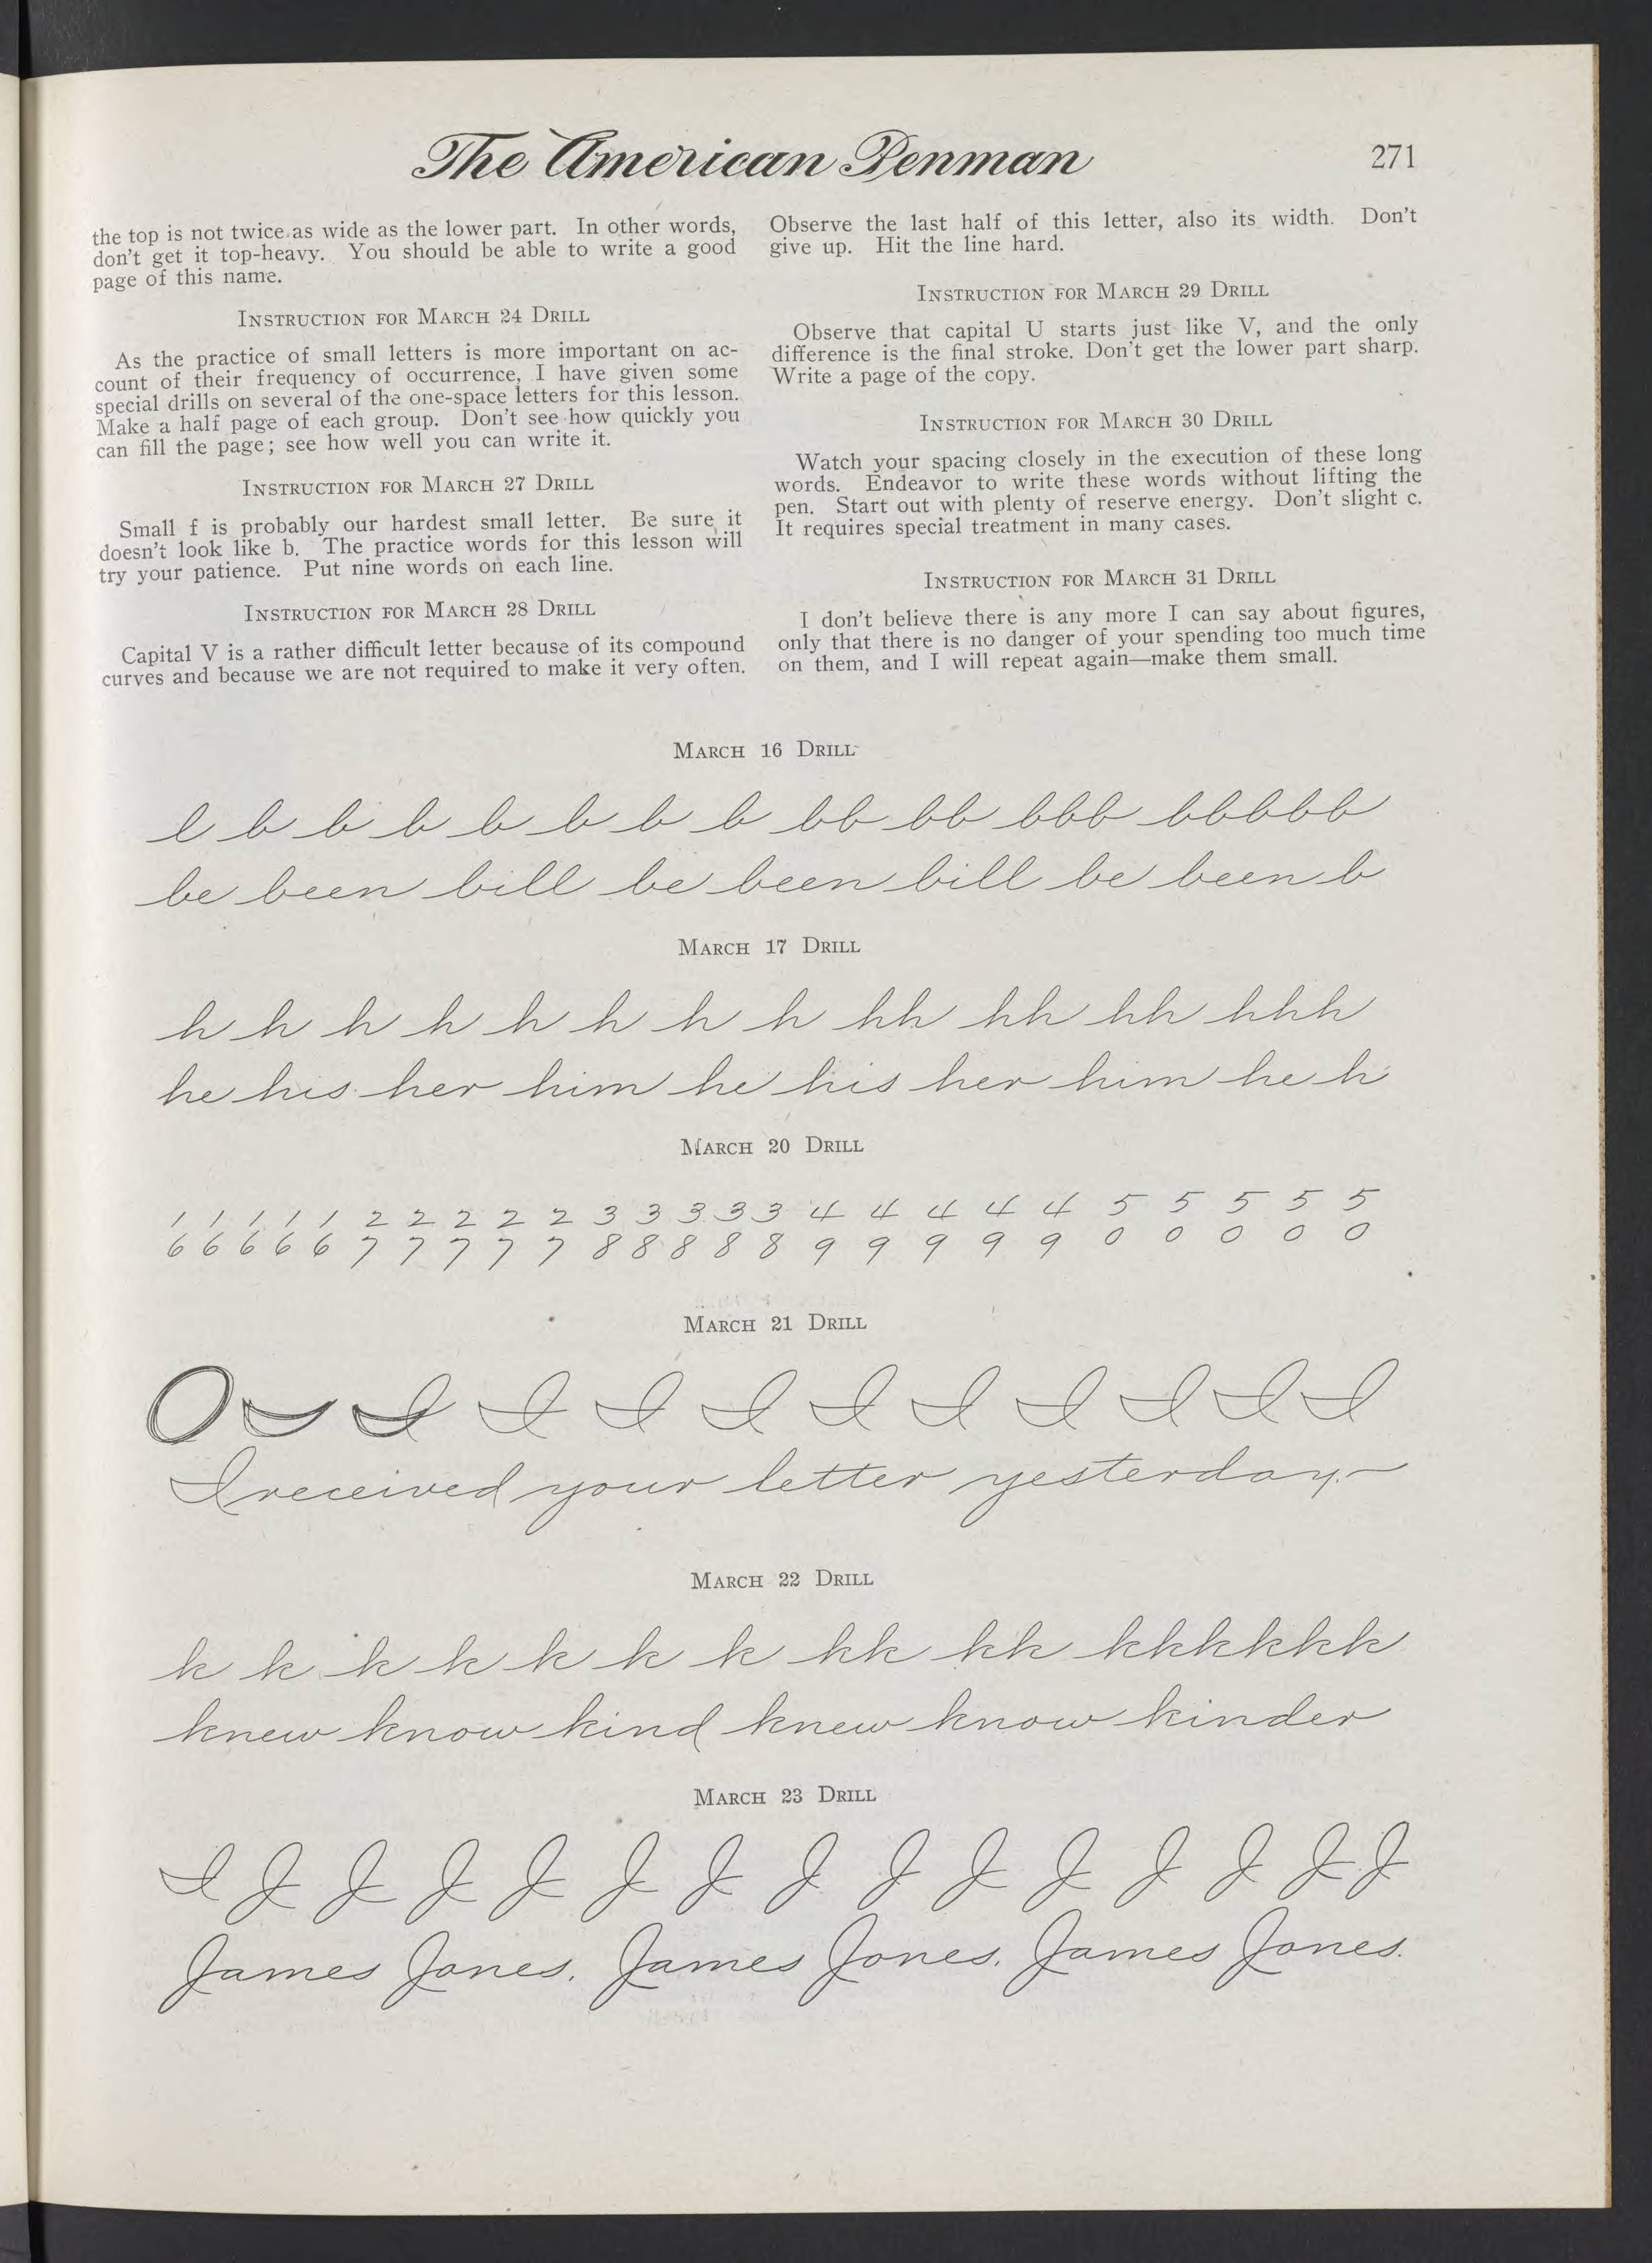 The American Penman
271
the top is not twice as wide as the lower part. In other words,
don't get it top-heavy. You should be able to write a good
page of this name.
Instruction for March 24 Drill
As the practice of small letters is more important on ac-
count of their frequency of occurrence, I have given some
special drills on several of the one-space letters for this lesson.
Make a half page of each group. Don't see how quickly you
can fill the page; see how well you can write it.
Instruction for March 27 Drill
Small f is probably our hardest small letter. Be sure it
doesn't look like b. The practice words for this lesson will
try your patience. Put nine words on each line.
Instruction for March 28 Drill
Capital V is a rather difficult letter because of its compound
curves and because we are not required to make it very often.
Observe the last half of this letter, also its width. Don't
give up. Hit the line hard.
Instruction for March 29 Drill
Observe that capital U starts just like V, and the only
difference is the final stroke. Don't get the lower part sharp.
Write a page of the copy.
Instruction for March 30 Drill
Watch your spacing closely in the execution of these long
words. Endeavor to write these words without lifting the
pen. Start out with plenty of reserve energy. Don't slight c.
It requires special treatment in many cases.
Instruction for March 31 Drill
I don't believe there is any more I can say about figures,
only that there is no danger of your spending too much time
on them, and I will repeat again—make them small.
March 16 Drill
l b b b b b b b bb bb bbb bbbbb
be been bill be been bill be been b
March 17 Drill
h h h h h h h h hh hh hh hhh
he his her him he his her him he h
March 20 Drill
1 1 1 1 1 2 2 2 2 2 3 3 3 3 3 4 4 4 4 4 5 5 5 5 5
6 6 6 6 6 7 7 7 7 7 8 8 8 8 8 9 9 9 9 9 0 0 0 0 0
March 21 Drill
O I I I I I I I I I I
I received your letter yesterday.
March 22 Drill
k k k k k k k kk kk kkkkkk
knew know kind knew know kinder
March 23 Drill
I J J J J J J J J J J J J J J
James Jones. James Jones. James Jones.